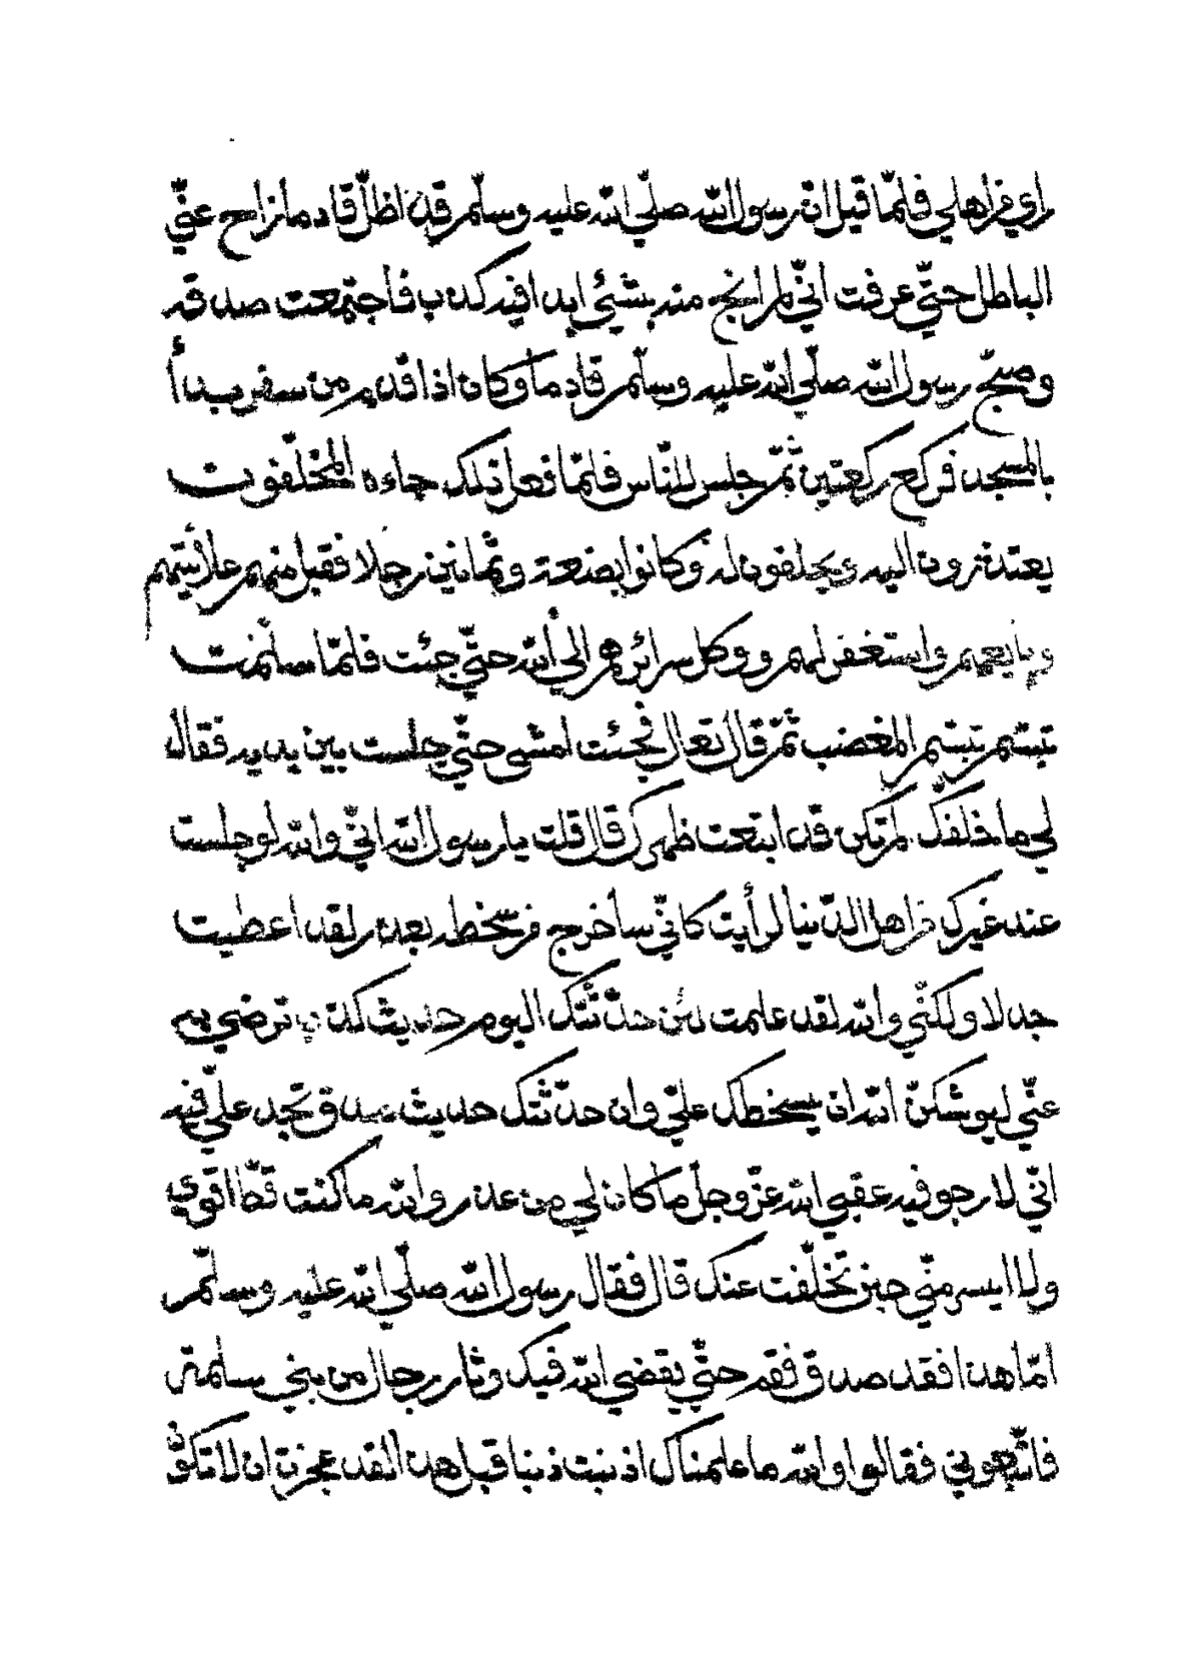 راي من أهلي فلمّا قيل انّ رسول اللّه صلّي اللّه عليه وسلّم قد اظلّ قادما زاح عنّي
الباطل حتّي عرفت انّي لم انج منه بشئي ابدا فيه كذب فأجتمعت صدقه
وصبّح رسول اللّه صلّي اللّه عليه وسلّم قادما وكان اذا قدم من سفر بدأ
بالمسجد فركع ركعتين ثمّ جلس للنّاس فلمّا فعل ذلك جاءه المخلّفون
يعتذرون اليه ويحلفون له وكانوا بضعة وثمانين رجلا فقبل منهم علانيتهم
وبايعهم واستغفر لهم ووكل سرائرهم الي اللّه حتّي جئت فلمّا سلّمت
تبسّم تبسّم المغضب ثمّ قال تعال فجئت امشي حتّي جلست بين يديه فقال
لي ما خلفك لم تكن قد ابتعت ظهرك قال قلت يا رسول اللّه انّي واللّه لو جلست
عند غيرك من اهل الدّنيا لرأيت كانّي سأخرج من سخطه بعذر لقد اعطيت
جدلا ولكنّي واللّه لقد علمت لئن حدّثتك اليوم حديث كذب ترضي به
عنّي ليوشكنّ اللّه ان يسخطك عليّ وان حدّثتك حديث صدق تجد عليّ فيه
انّي لارجو فيه عقبي اللّه عزّ وجلّ ما كان لي من عذر واللّه ما كنت قطّ اقوي
ولا ايسر منّي حين تخلّفت عنك قال فقال رسول اللّه صلّي اللّه عليه وسلّم
امّا هذا فقد صدق فقم حتّي يقضي اللّه فيك وثار رجال من بني سلمة
فاتّبعوني فقالوا واللّه ما علمناك اذنبت ذنبا قبل هذا لقد عجزت ان لا تكون